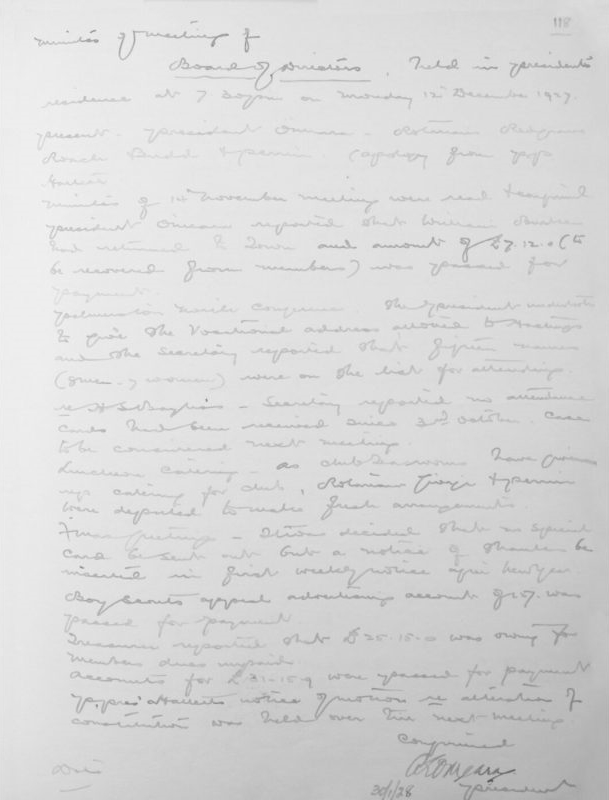 118
Minutes of Meeting of
Board of Directors. Held in President's
residence at 7.30pm on Monday 12th December 1927.
Present. President Omeara. Rotarians
Roach (apology from
Minutes of 14th November meeting were read &
President Omeara reported that William
had returned to Town and amount of £7.12.0 (to
be recovered from members) was passed for
payment.
The President
to give the Vocational address allotted to Hastings
and the Secretary reported that fifteen names
(8 men 7 women) were on the list for attending.
re H S - Secretary reported no attendance
Cards had been received since 3rd October. Case
to be considered next meeting.
Luncheon Catering - as club have given
up catering for club, Rotarian
were deputed to make fresh arrangements.
Xmas Greetings - It was decided that no special
card be sent out but a notice of be
inserted in first weekly notice after New Year
Boy Scouts appeal advertising account of was
passed for payment
Treasurer reported that £25-15-0 was owing for
members dues unpaid.
Accounts for £31-15-9 were passed for payment
Hallett's notice of motion re alteration of
constitution was held over till next meeting
Confirmed
Omeara
Date
30/1/28 President